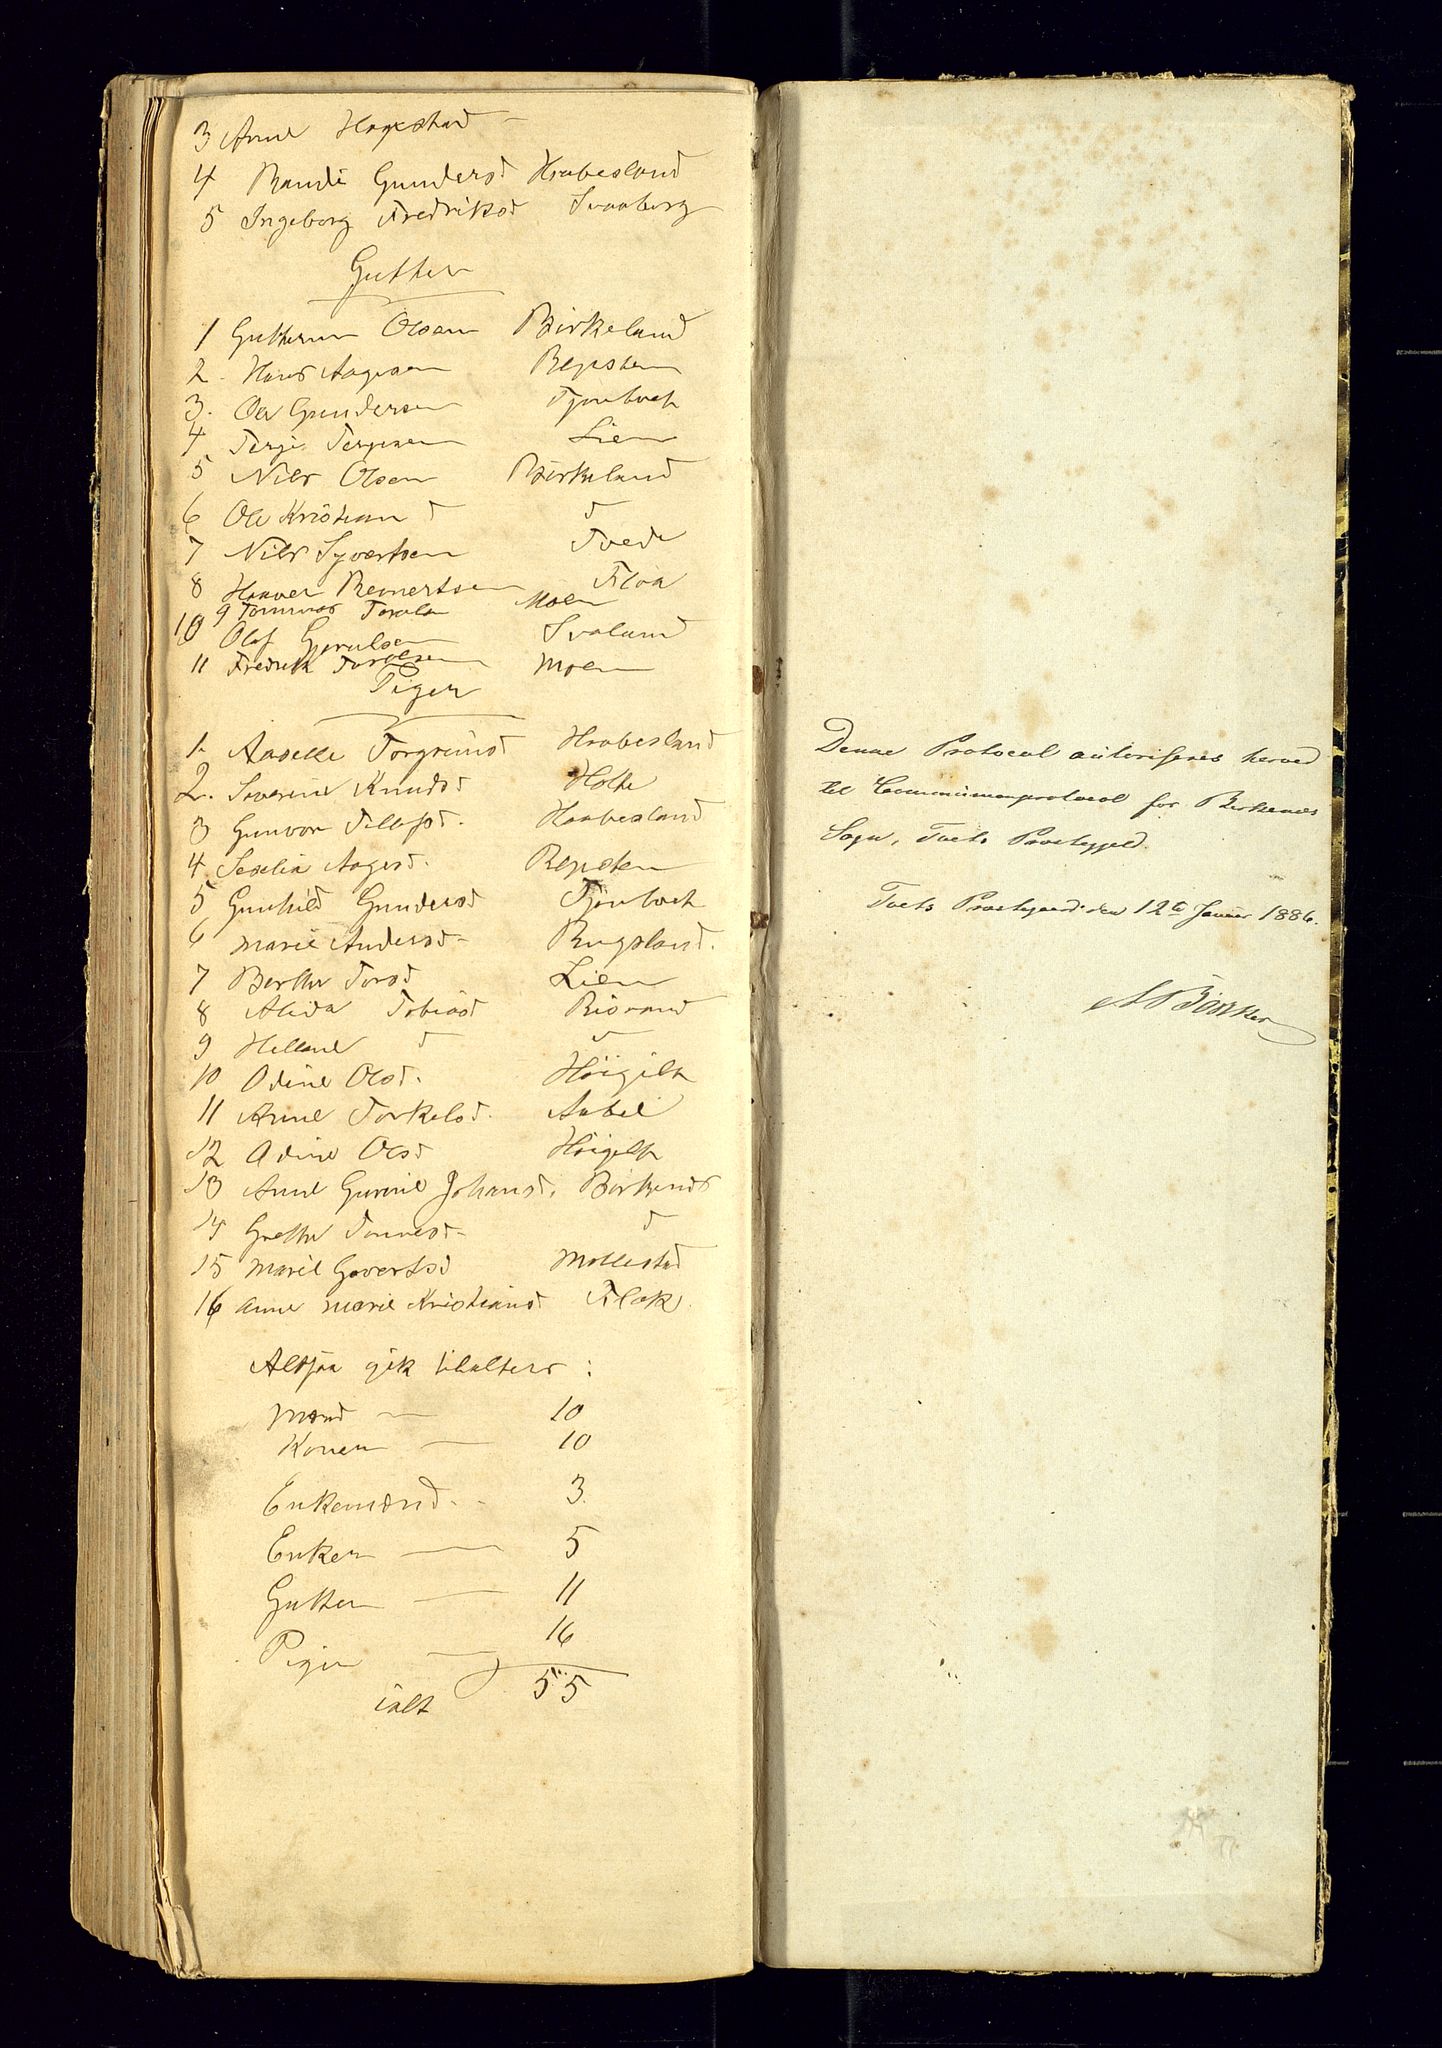 3 Anne Hagestad –
4 Randi Gundersd Hrabesland
5 Ingeborg Fredriksd Svaaborg
Gutter
1 Guttorm Olsen Birkeland
2. Hans Aagesen Repsten
3. Ole Gundersen Tjønboek
4 Terje Terjesen Lien
5 Nils Olsen Birkeland
6 Ole Kristian d d
7 Nils Syvertsen Tvede
8 Haaver Reinertsen Floa
9 Tommas Moen
10 Olaf Svaland
11 Fredrik Moen
Piger
1. Aaselle Torgrimsd Hrabesland
2. Severine Knudsd Holte
3 Gunvor Tellefsd. Haabesland
4 Seselia Aagesd. Repsten
5 Gunhild Gundersd Tjønboek
6 Marie Andersd – Rugsland.
7 Berthe Torsd Lien
8 Alida Tobiasd Risrand
9 Helland d d
10 Odine Olsd. Høigilt
11 Anne Torkelsd. Aabel
12 Odine Olsd Høigilt
13 Anne Gurine Johansd. Birkenes
14 Grethe Tonnesd – d
15 Marie Govertsd Mollestad
16 Anne Marie Kristiansd Flak
Altsaa gik tilalters :
Mænd — 10
Koner — 10
Enkemænd. - 3.
Enker — 5
Gutter — 11
Piger — 16
ialt 55
Denne Protocol autoriseres herved
til Communionprotocol for Birkenes
Sogn, Tvets Præstegjeld.
Tvets Præstegaard den 12te Januar 1886.